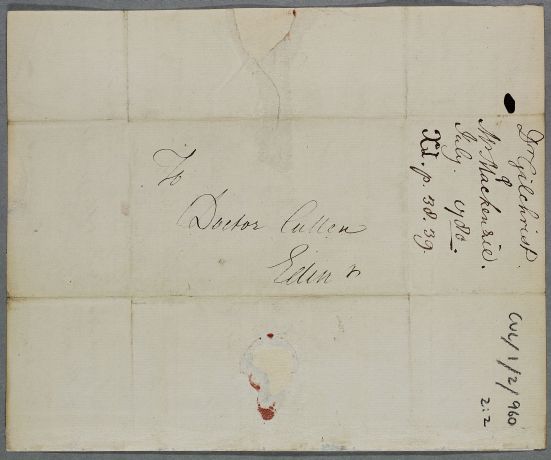 To
Doctor Cullen
Edinr
Dr Gilchrist.
Mr Mackenzie.
July. 780.
XI. p. 38. 39.
CUL/1/2/960
2:2